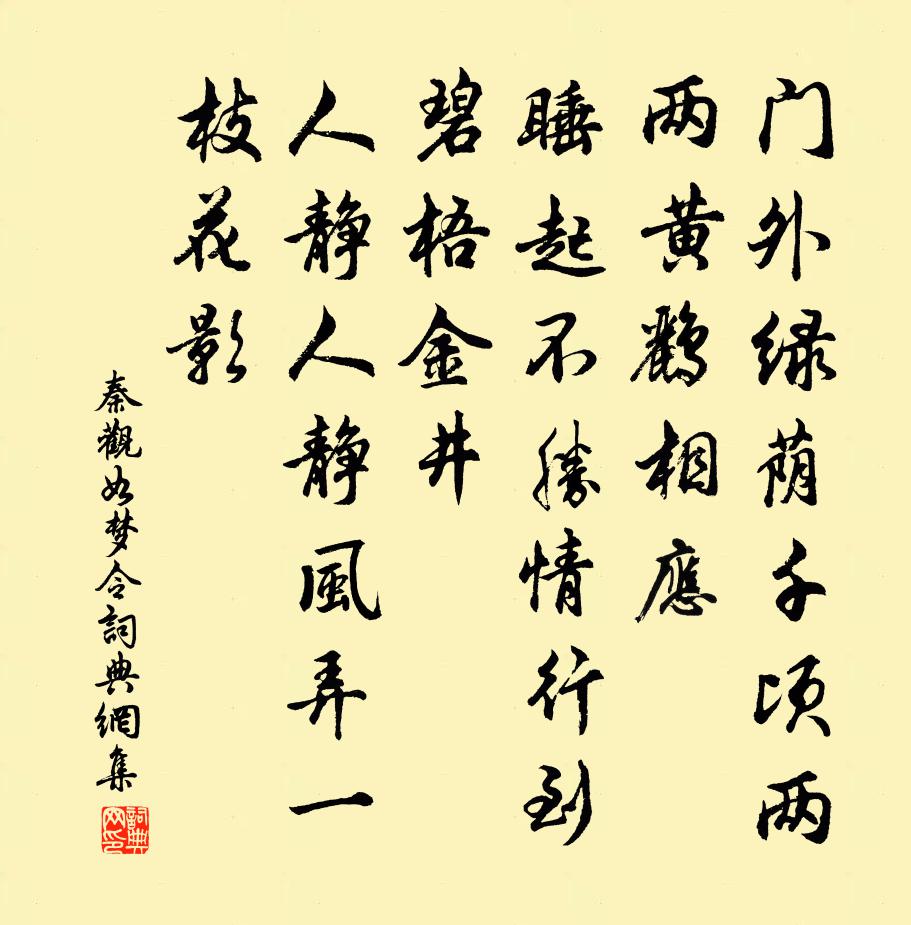 门外绿荫千顷两
两黄鹂相應
睡起不勝情行到
碧梧金井
人静人静風弄一
枝花影
秦觀如梦令詞典網集
詞典网印